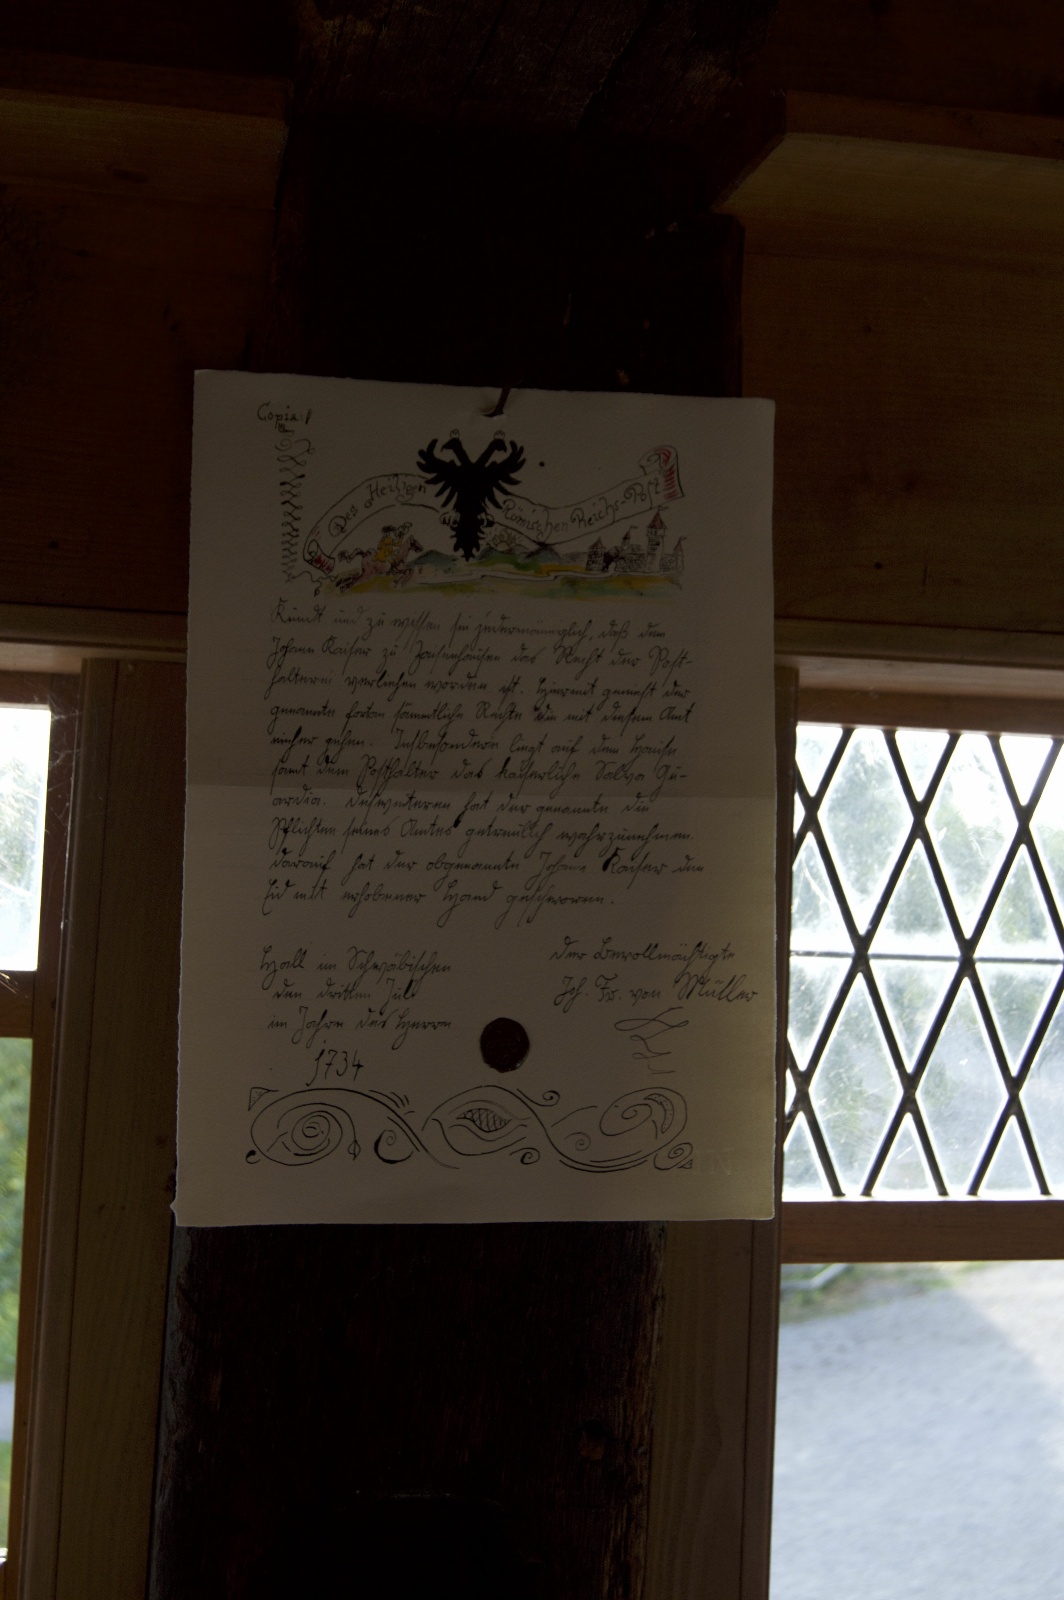 Copia!
Des Heiligen
Römischen Reichs-Post
Kundt und zu wissen sei jedermänniglich, daß dem
Johann Kaiser zu das Recht der Post-
halterei verliehen worden ist. Hiermit genießt der
genannte fortan sämmtliche Rechte die mit diesem Amt
einher gehen. Insbesondere liegt auf dem Hause
samt dem Posthalter das kaiserliche Salva Gu-
ardia. Desweiteren hat der genannte die
Pflichten seines Amtes getreulich wahrzunehmen.
darauf hat der obgenannte Johann Kaiser den
Eid mit erhobener Hand geschworen.
Hall im Schwäbischen
den dritten Juli
im Jahre des Herrn
1734
der Bevollmächtigte
Joh. Fr. von Müller